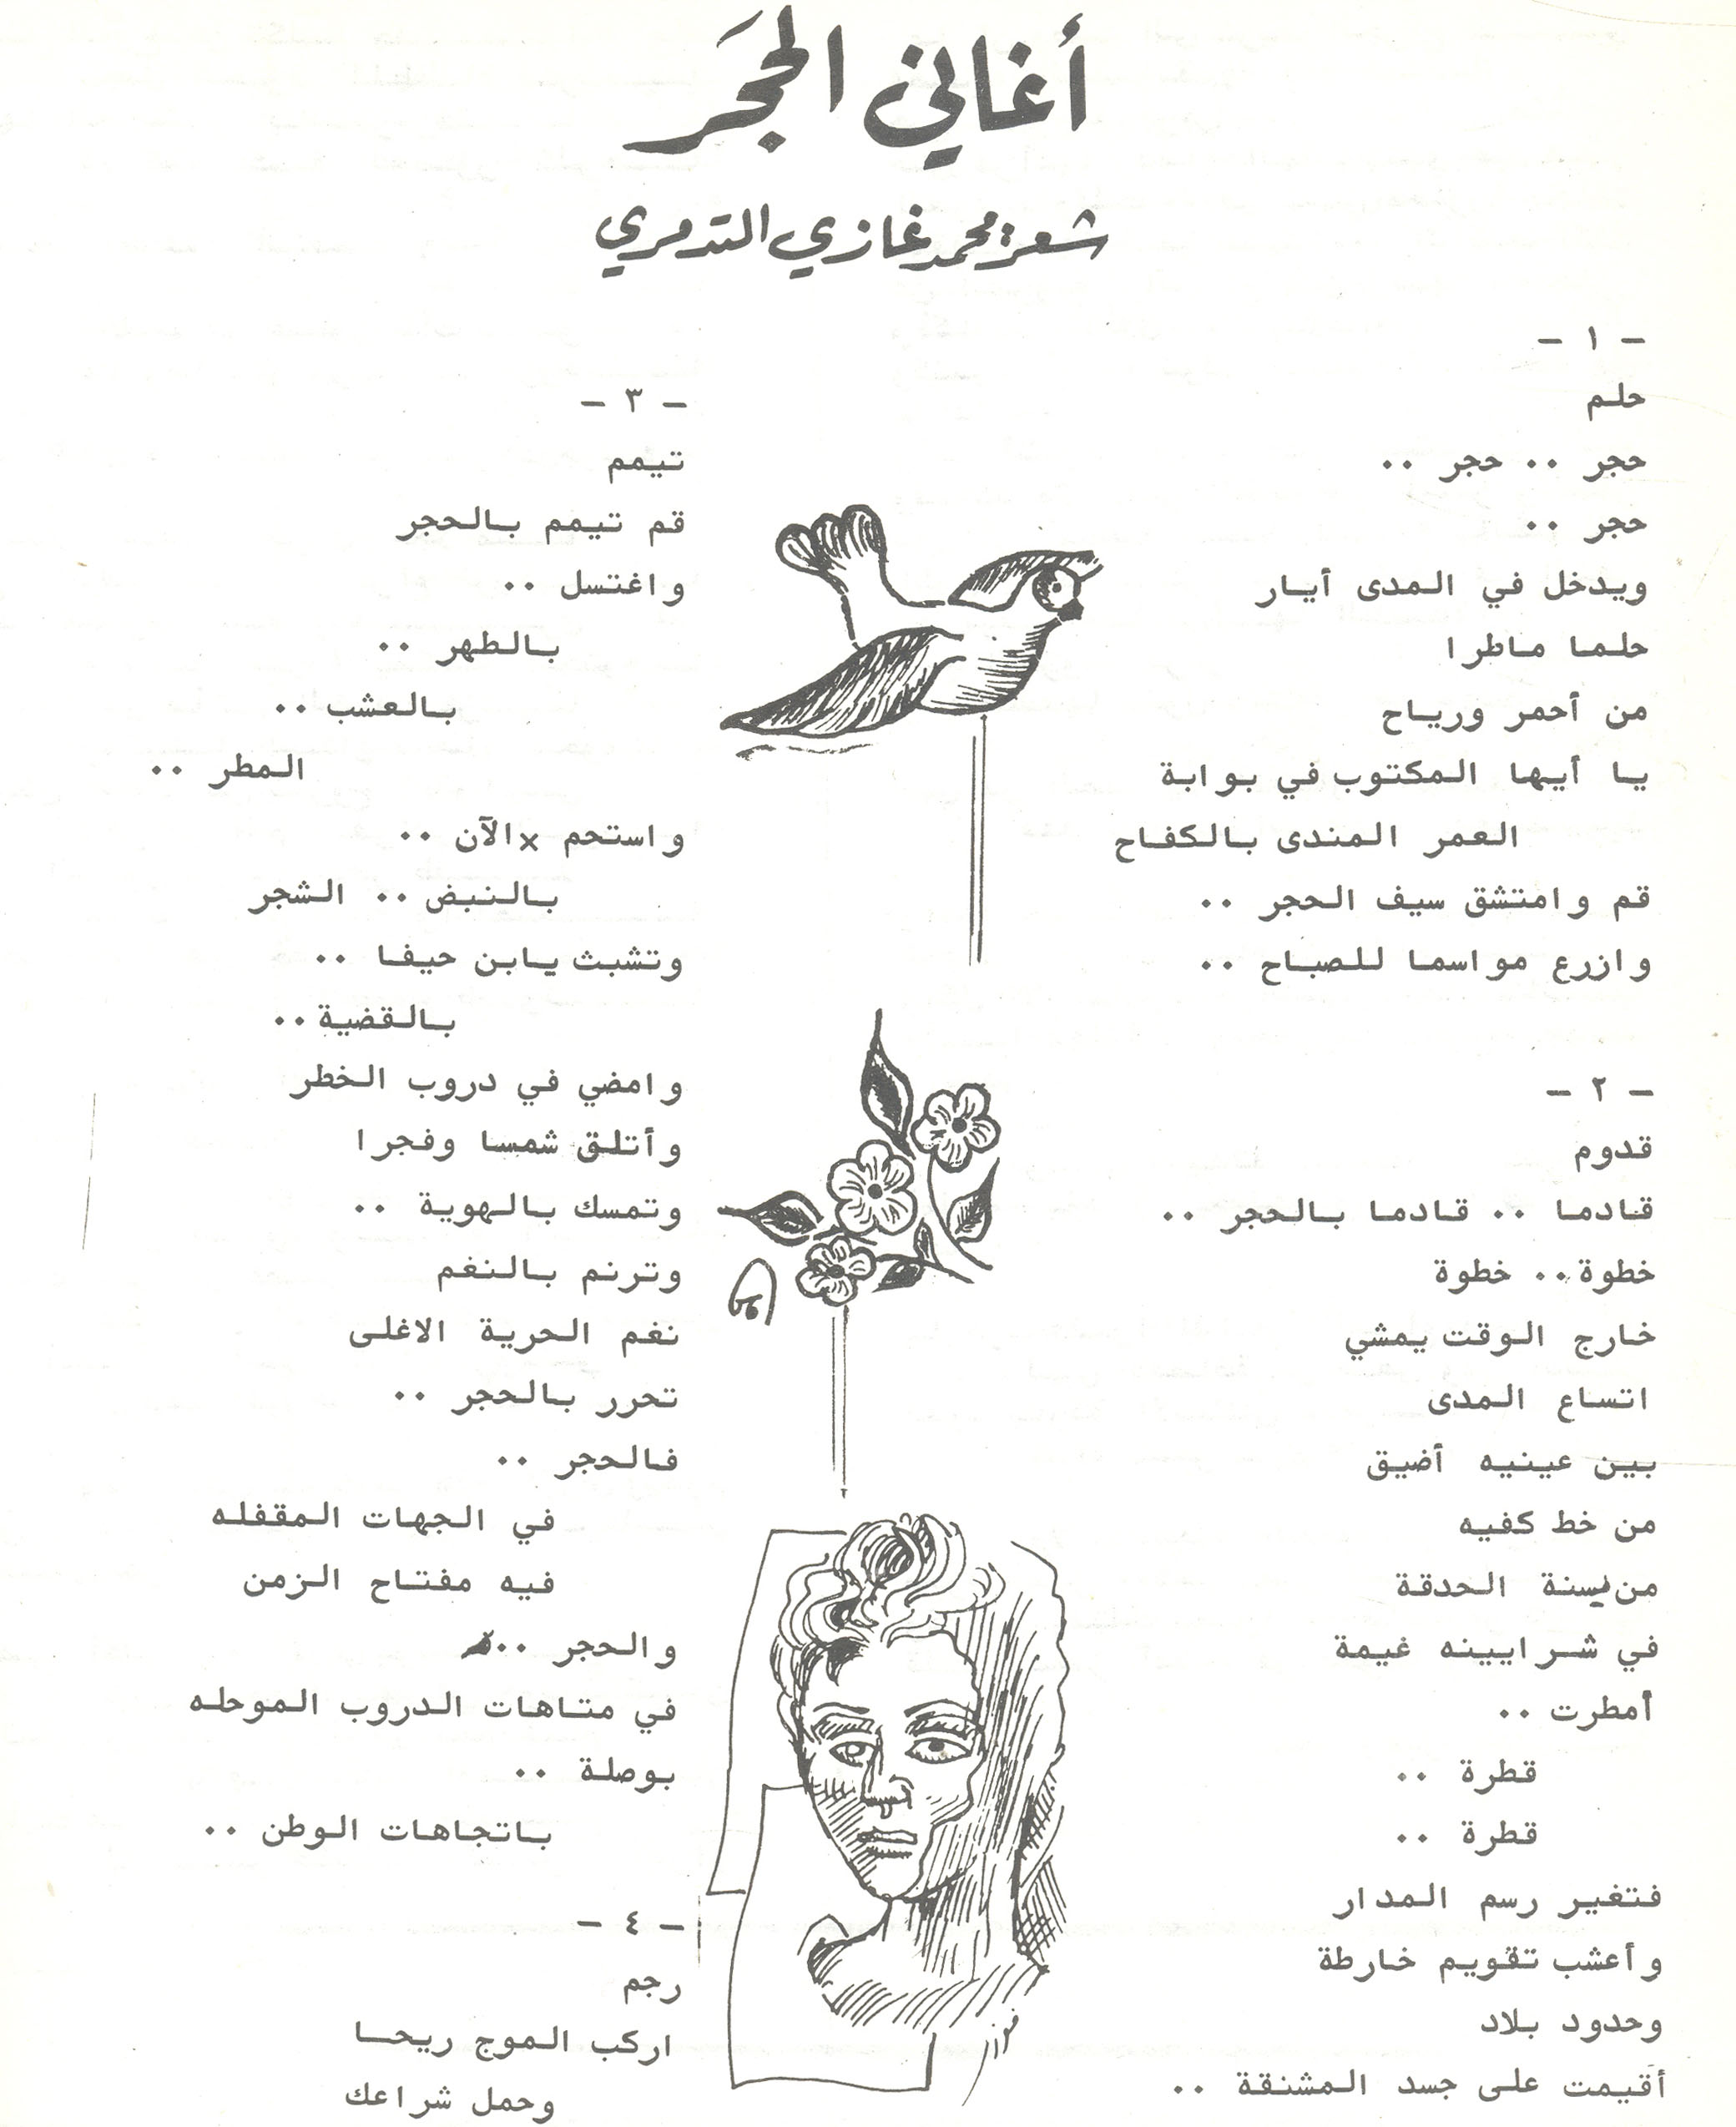 أغاني الحجَر
شعر: محمد غازي التدمري
- ١ -
حلم
حجر .. حجر ..
حجر ..
ويدخل في المدى أيار
حلما ماطرا
من أحمر ورياح
يا أيها المكتوب في بوابة
العمر المندى بالكفاح
قم وامتشق سيف الحجر ..
وازرع مواسما للصباح ..
- ٢ -
قدوم
قادما .. قادما بالحجر ..
خطوة .. خطوة
خارج الوقت يمشي
اتساع المدى
بين عينيه أضيق
من خط كفيه
من سنة الحدقة
في شرايينه غيمة
أمطرت ..
قطرة ..
قطرة ..
فتغير رسم المدار
وأعشب تقويم خارطة
وحدود بلاد
أقيمت على جسد المشنقة ..
- ٣ -
تيمم
قم تيمم بالحجر
واغتسل ..
بالطهر ..
بالعشب ..
المطر ..
واستحم x الآن ..
بالنبض .. الشجر
وتشبث يابن حيفا ..
بالقضية ..
وامضي في دروب الخطر
وأتلق شمسا وفجرا
وتمسك بالهوية ..
وترنم بالنغم
نغم الحرية الاغلى
تحرر بالحجر ..
فالحجر ..
في الجهات المقفله
فيه مفتاح الزمن
والحجر ..
في متاهات الدروب الموحله
بوصلة ..
باتجاهات الوطن ..
- ٤ -
رجم
اركب الموج ريحا
وحمل شراعك